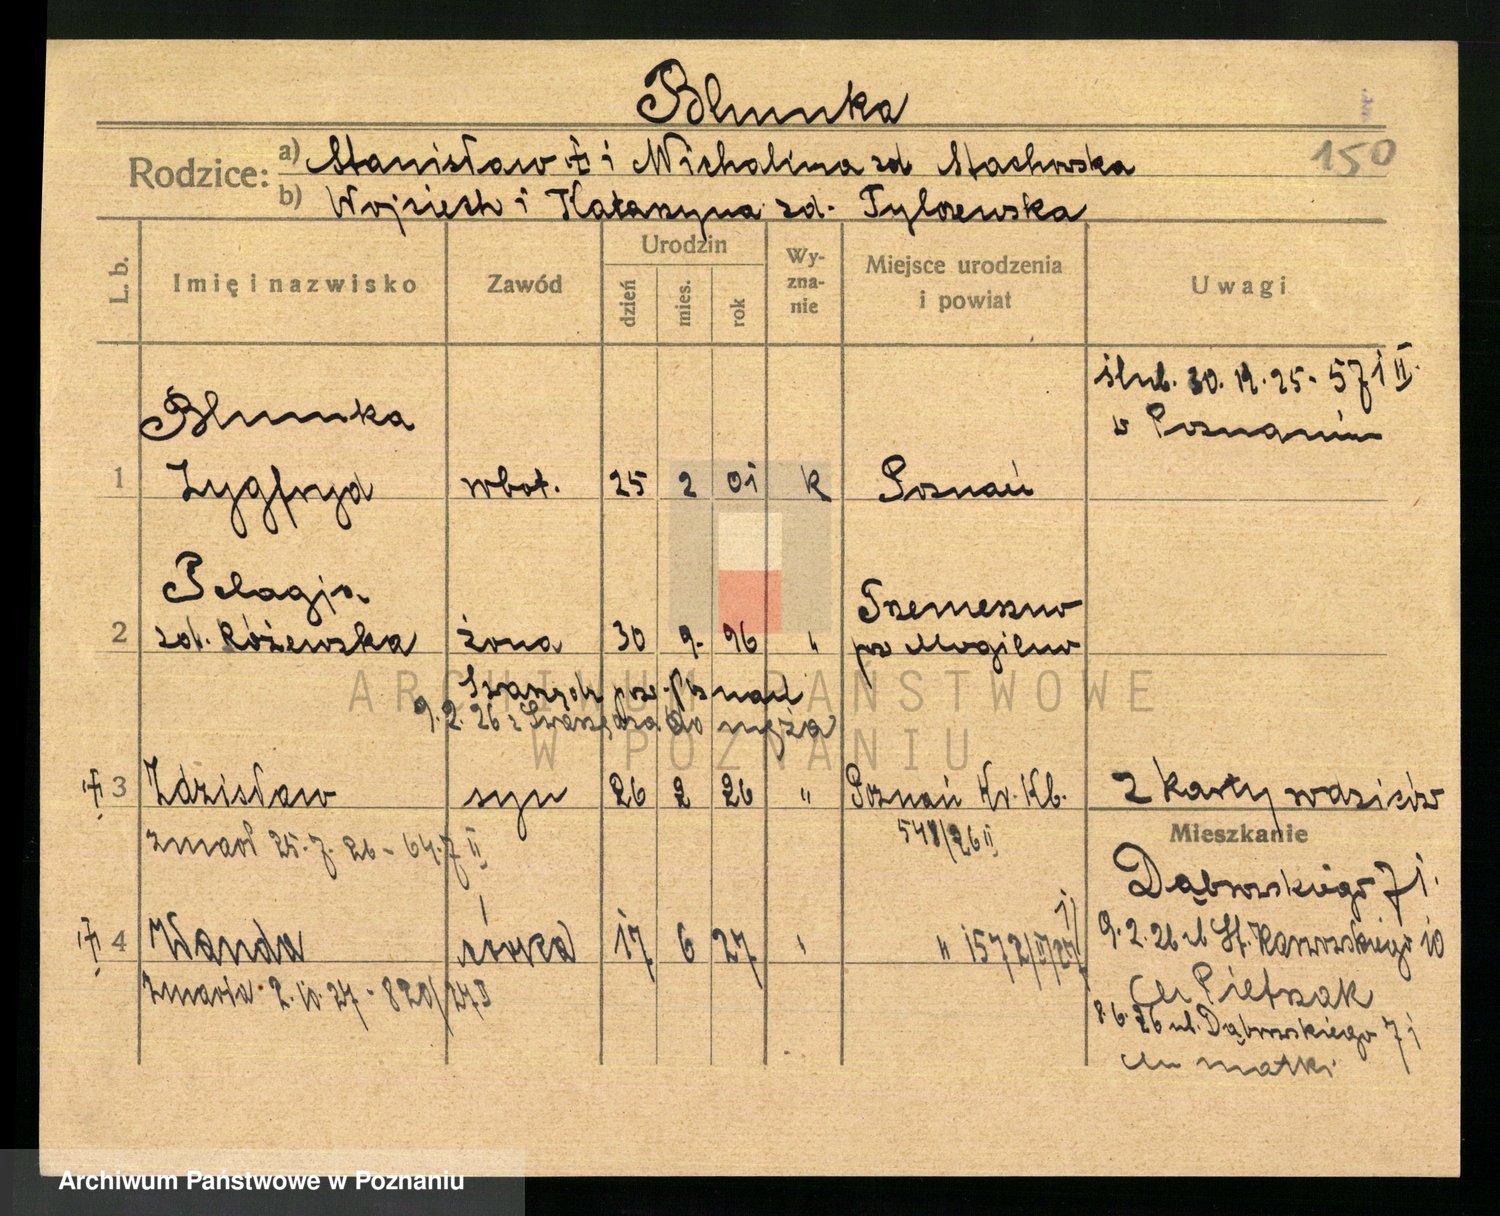 Blumka
150
Rodzice: a) Stanisław i Michalina zd Stachowska
b) Wojciech i Katarzyna zd. Tylczewska
L. b. Imię i nazwisko Zawód Urodzin dzień mies. rok Wyznanie Miejsce urodzenia i powiat Uwagi
ślub. 30. 11. 25 - 571 II
w Poznaniu
Blumka
1 Zygfryd robot. 25 2 01 k Poznań
Pelagja Trzemeszno
2 zd. Różewska żona 30 9. 96 " po Mogilno
Swarzędz pow. Poznań
9. 2. 26 z Swarzędza do męża
3 Zdzisław syn 26 2 26 " Poznań Kr. Kb. 2 karty rodziców
548/26 II
zmarł 25. 7. 26 - 64. 7 II
Mieszkanie
Dąbrowskiego 71.
4 Wanda córka 17 6 27 " " 1572/II/27
9. 2. 26 ul. 10
Zmarła 2. 10. 27 - 820/27 II
Pietrzak
8. 6. 26 ul. Dąbrowskiego 71
matki
ARCHIWUM PAŃSTWOWE
W POZNANIU
Archiwum Państwowe w Poznaniu